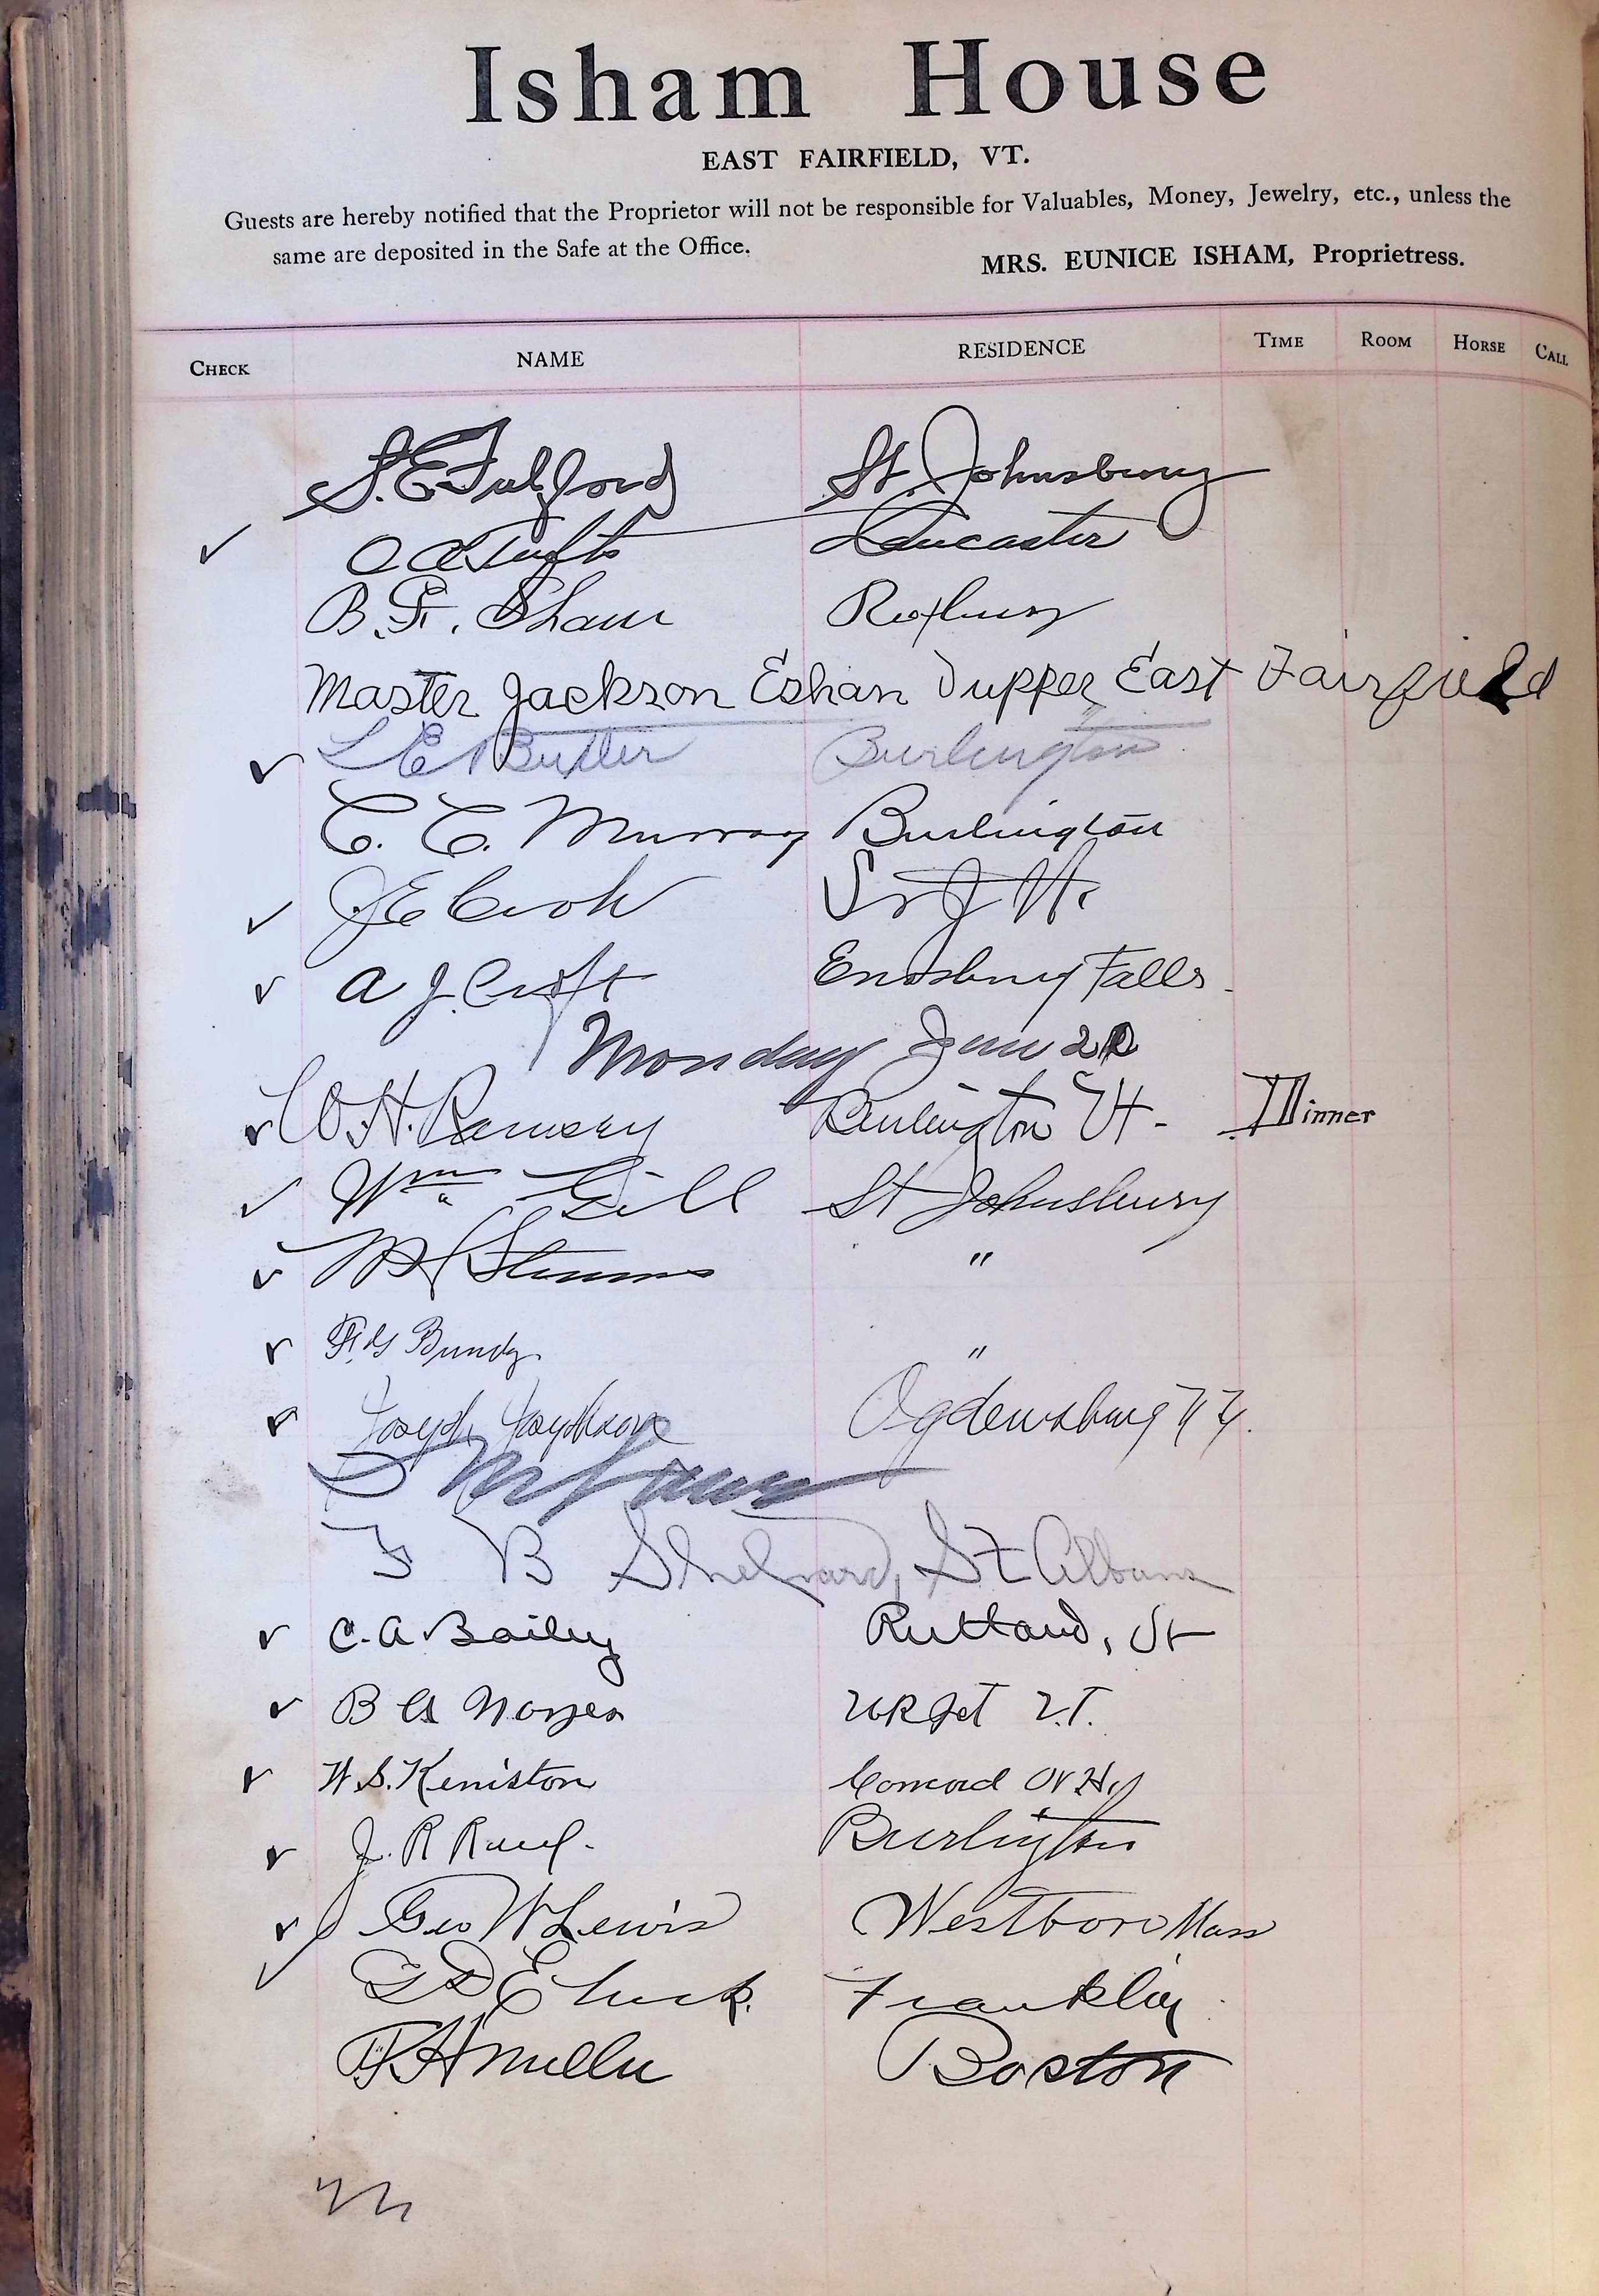 Isham House
EAST FAIRFIELD, VT.
Guests are hereby notified that the Proprietor will not be responsible for Valuables, Money, Jewelry, etc., unless the
same are deposited in the Safe at the Office.
MRS. EUNICE ISHAM, Proprietress.
CHECK NAME RESIDENCE TIME ROOM HORSE CALL
S. E. Fulford St. Johnsbury
✓ Tufts Lancaster
B. F. Shaw Roxbury
Master Jackson Eshan Tupper East Fairfield
✓ L E Butler Burlington
C. C. Murray Burlington
✓ J E Cook St J Vt.
✓ A J. Croft Enosburg Falls.
Monday Jun
✓ W. H. Ramsey Burlington Vt- Dinner
✓ Wm Gill St Johnsbury
✓ "
✓ Bundy. "
✓ Joseph Ogdensburg N Y.
B Shepard, St Albans
✓ C. A. Bailey Rutland, Vt
✓ B A Noyes
✓ W. S. Keniston Concord N. H.
✓ J. R Burlington
✓ Geo W Lewis Westboro Mass
✓ Franklin
Boston